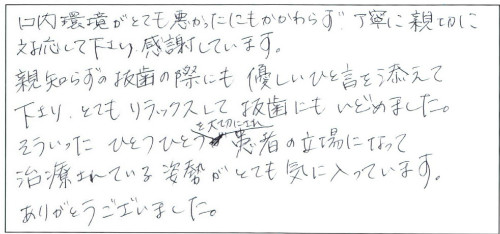 口内環境がとても悪かったにもかかわらず、丁寧に親切に
対応して下さり、感謝しています。
親知らずの抜歯の際にも優しいひと言を添えて
下さり、とてもリラックスして抜歯にもいどめました。
を大切にされ
そういったひとつひとつ患者の立場になって
治療されている姿勢がとても気に入っています。
ありがとうございました。